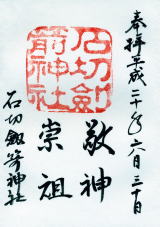 奉拝 平成二十年六月三十日
石切劔
箭神社
敬神
崇祖
石切劔箭神社